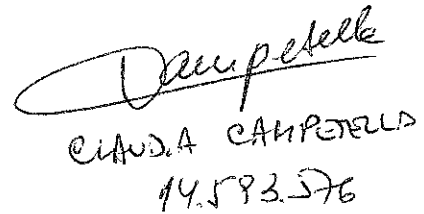 Campetella
CLAUDIA CAMPETELLA
14.593.576